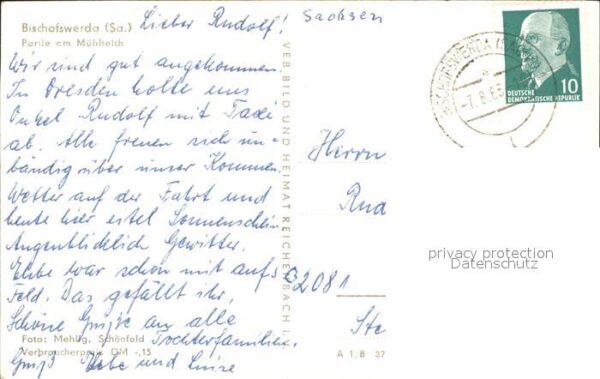 Bischofswerda (Sa.)
Partie am Mühlteich
Sachsen
Lieber Rudolf!
Wir sind gut angekommen.
In Dresden holte uns
Onkel Rudolf mit Taxi
ab. Alle freuen sich un-
bändig über unser Kommen.
Wetter auf der Fahrt und
heute hier eitel Sonnenschein
Augenblicklich Gewitter.
war schon mit auf's
Feld. Das gefällt ihr.
Schöne Grüße an alle
Tochterfamilien.
Gruß und Luise
Foto: Mehlig, Schönfeld
Verbraucherpreis DM -,15
VEB BILD UND HEIMAT REICHENBACH I.
A 1/8 37
BISCHOFSWERDA (SACHS)
-7.8.63
10
DEUTSCHE
DEMOKRATISCHE REPUBLIK
Herrn
Rud
2081
Ste
privacy protection
Datenschutz